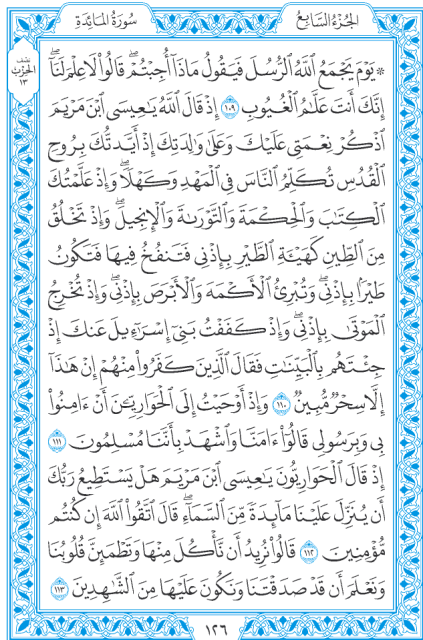 الجُزْءُ السَّابِعُ
سُورَةُ المَائِدَةِ
نصف
الحزب
١٣
۞ يَوْمَ يَجْمَعُ ٱللَّهُ ٱلرُّسُلَ فَيَقُولُ مَاذَآ أُجِبْتُمْۖ قَالُواْ لَا عِلْمَ لَنَآۖ
إِنَّكَ أَنتَ عَلَّٰمُ ٱلْغُيُوبِ ١٠٩ إِذْ قَالَ ٱللَّهُ يَٰعِيسَى ٱبْنَ مَرْيَمَ
ٱذْكُرْ نِعْمَتِى عَلَيْكَ وَعَلَىٰ وَٰلِدَتِكَ إِذْ أَيَّدتُّكَ بِرُوحِ
ٱلْقُدُسِ تُكَلِّمُ ٱلنَّاسَ فِى ٱلْمَهْدِ وَكَهْلًاۖ وَإِذْ عَلَّمْتُكَ
ٱلْكِتَٰبَ وَٱلْحِكْمَةَ وَٱلتَّوْرَىٰةَ وَٱلْإِنجِيلَۖ وَإِذْ تَخْلُقُ
مِنَ ٱلطِّينِ كَهَيْـَٔةِ ٱلطَّيْرِ بِإِذْنِى فَتَنفُخُ فِيهَا فَتَكُونُ
طَيْرًۢا بِإِذْنِىۖ وَتُبْرِئُ ٱلْأَكْمَهَ وَٱلْأَبْرَصَ بِإِذْنِىۖ وَإِذْ تُخْرِجُ
ٱلْمَوْتَىٰ بِإِذْنِىۖ وَإِذْ كَفَفْتُ بَنِىٓ إِسْرَٰٓءِيلَ عَنكَ إِذْ
جِئْتَهُم بِٱلْبَيِّنَٰتِ فَقَالَ ٱلَّذِينَ كَفَرُواْ مِنْهُمْ إِنْ هَٰذَآ
إِلَّا سِحْرٌ مُّبِينٌ ١١٠ وَإِذْ أَوْحَيْتُ إِلَى ٱلْحَوَارِيِّـۧنَ أَنْ ءَامِنُواْ
بِى وَبِرَسُولِى قَالُوٓاْ ءَامَنَّا وَٱشْهَدْ بِأَنَّنَا مُسْلِمُونَ ١١١
إِذْ قَالَ ٱلْحَوَارِيُّونَ يَٰعِيسَى ٱبْنَ مَرْيَمَ هَلْ يَسْتَطِيعُ رَبُّكَ
أَن يُنَزِّلَ عَلَيْنَا مَآئِدَةً مِّنَ ٱلسَّمَآءِۖ قَالَ ٱتَّقُواْ ٱللَّهَ إِن كُنتُم
مُّؤْمِنِينَ ١١٢ قَالُواْ نُرِيدُ أَن نَّأْكُلَ مِنْهَا وَتَطْمَئِنَّ قُلُوبُنَا
وَنَعْلَمَ أَن قَدْ صَدَقْتَنَا وَنَكُونَ عَلَيْهَا مِنَ ٱلشَّٰهِدِينَ ١١٣
١٢٦